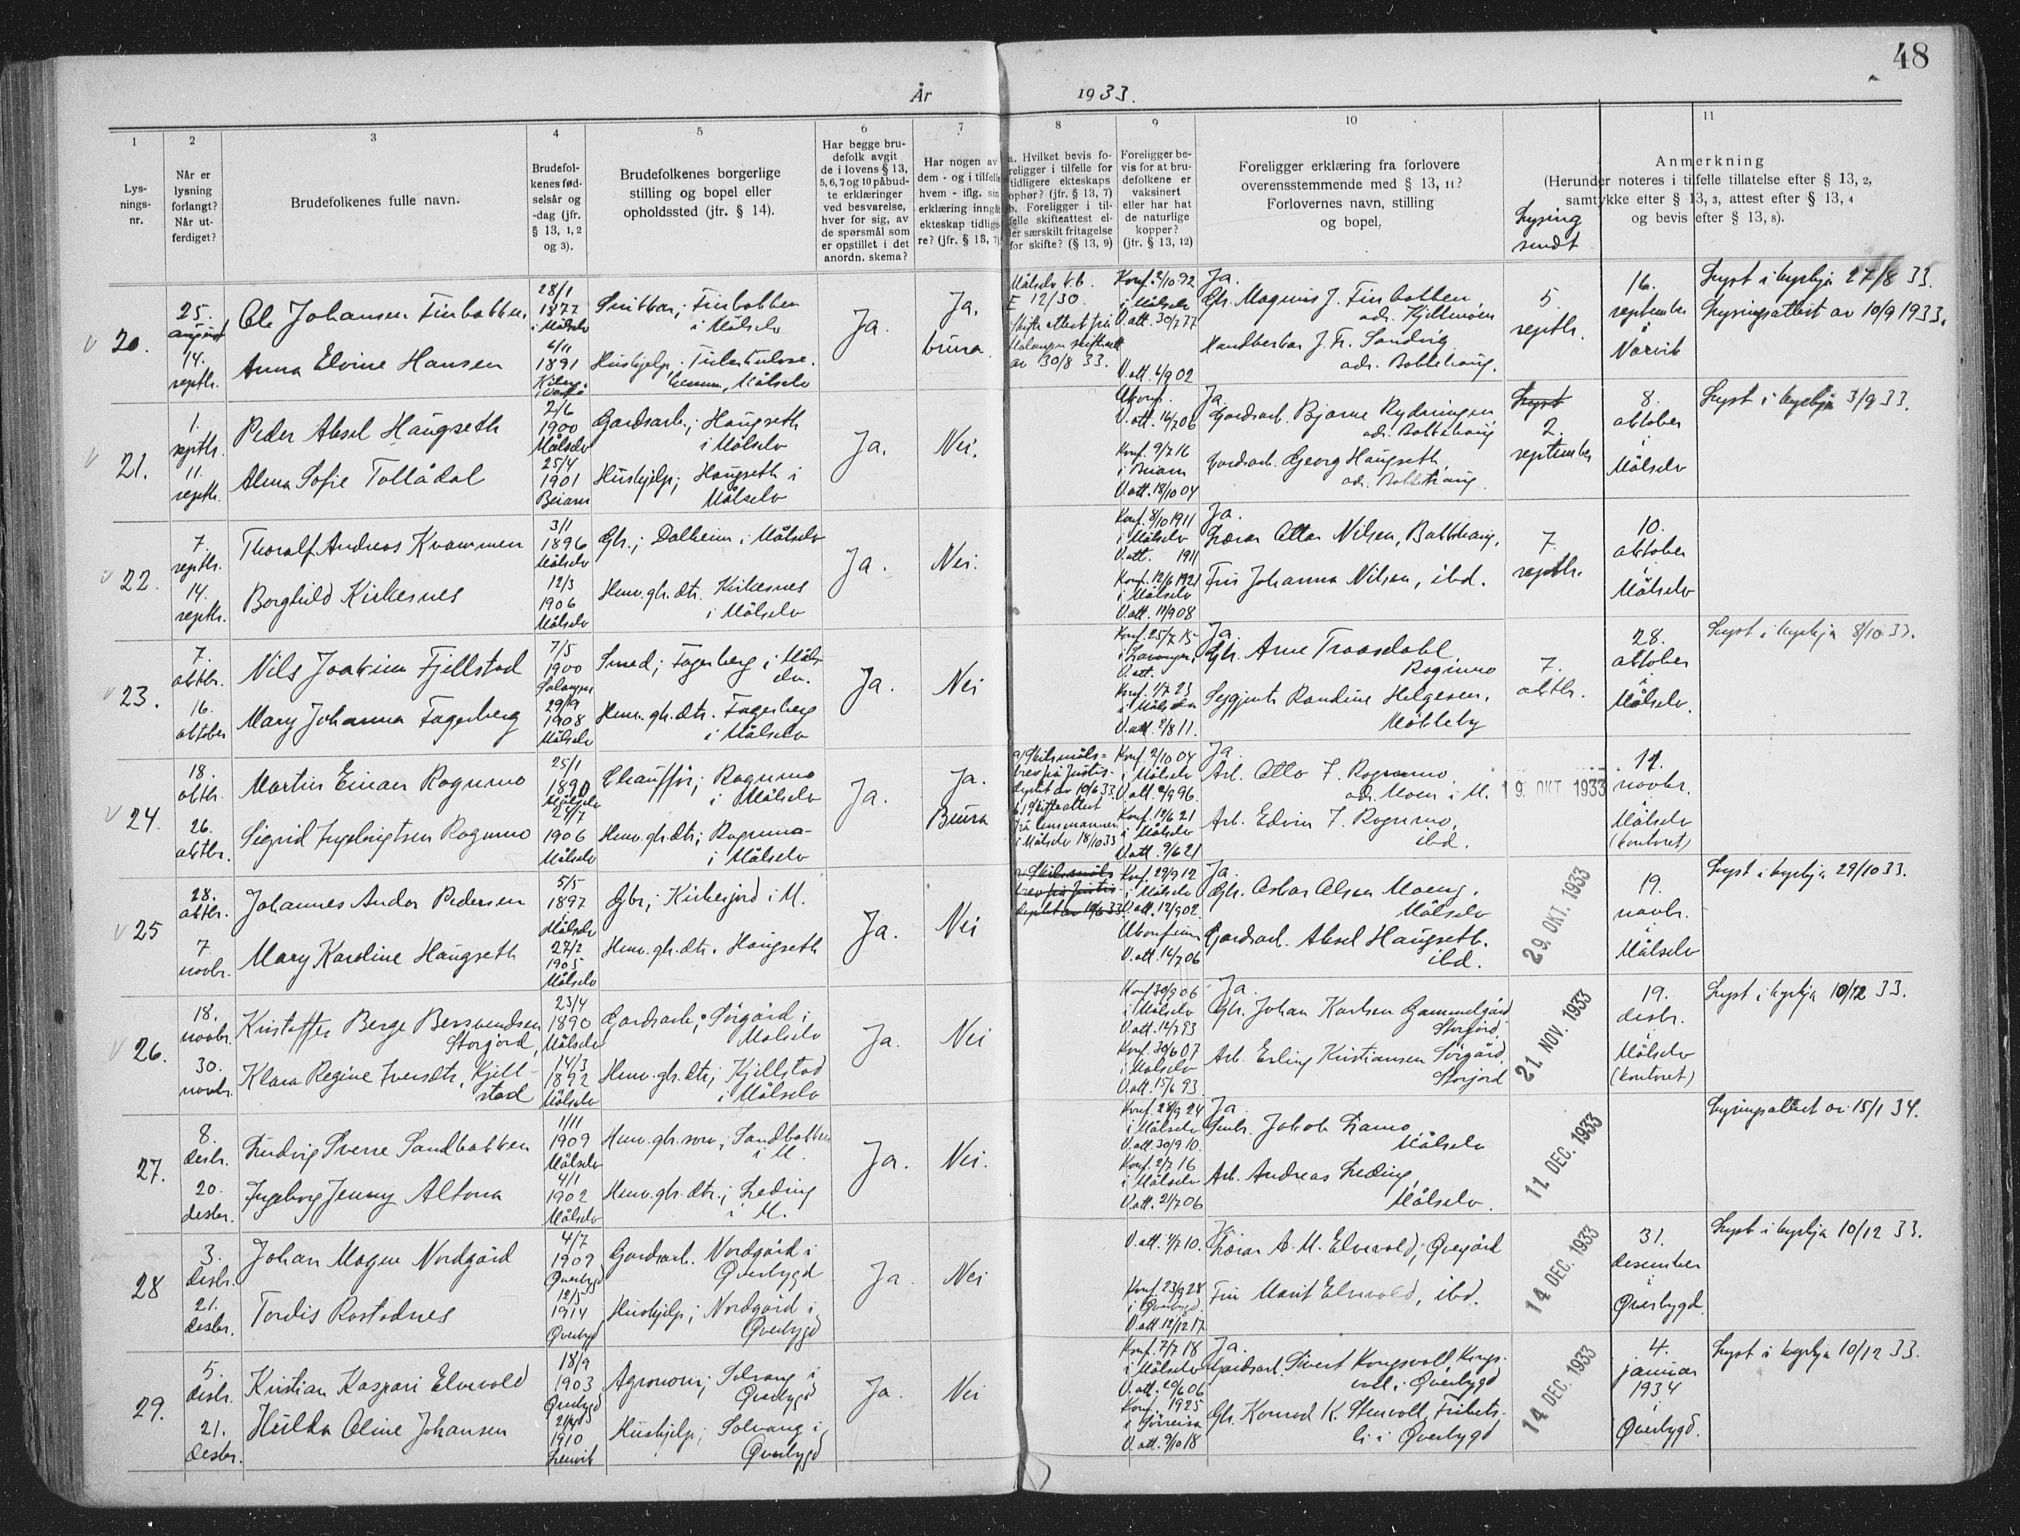 48
År 1933.
1
2
3
4
5
6
7
8
9
10
11
Lys-
nings-
nr.
Når er
lysning
forlangt?
Når ut-
ferdiget?
Brudefolkenes fulle navn.
Brudefol-
kenes fød-
selsår og
-dag (jfr.
§ 13, 1, 2
og 3).
Brudefolkenes borgerlige
stilling og bopel eller
opholdssted (jfr. § 14).
Har begge bru-
defolk avgit
de i lovens § 13,
5, 6, 7 og 10 påbud-
te erklæringer
ved besvarelse,
hver for sig, av
de spørsmål som
er opstillet i det
anordn. skema?
Har nogen av
dem - og i tilfelle
hvem - iflg. sin
erklæring inngåt
ekteskap tidlige-
re? (jfr. § 13, 7)
a. Hvilket bevis fo-
religger i tilfelle for
tidligere ekteskaps
ophør? (jfr. § 13, 7)
b. Foreligger i til-
felle skifteattest el-
ler særskilt fritagelse
for skifte? (§ 13, 9)
Foreligger be-
vis for at bru-
defolkene er
vaksinert
eller har hat
de naturlige
kopper?
(jfr. § 13, 12)
Foreligger erklæring fra forlovere
overensstemmende med § 13, 11?
Forlovernes navn, stilling
og bopel.
Lysing
sendt
Anmerkning
(Herunder noteres i tilfelle tillatelse efter § 13, 2,
samtykke efter § 13, 3, attest efter § 13, 4
og bevis efter § 13, 8).
20.
25.
august
14.
septbr.
Ole Johansen Finbakken.
Anna Elvine Hansen
28/1
1877
i Målselv
6/11
1891
Finbakken
i Målselv
Målselv
Ja.
Ja.
Målselv k.b.
E 12/30.
Skifteattest frå
av 30/8 33.
Konf. 2/10 92
i Målselv
V.att. 30/7 77
V.att. 4/9 02
Ja.
Gbr. Magnus J. Finbakken,
adr. Kjellmoen
Handberbar J. Fr. Sandvig
adr. Bakkehaug.
5.
septbr.
16.
september
i
Narvik
Lyst i kyrkja 27/8 33.
Lysingsattest av 10/9 1933.
21.
1.
septbr.
11.
septbr.
Peder Aksel Haugseth
Alma Sofie Tollådal
2/6
1900
Målselv
25/4
1901
Beiarn
Gardsarb.; Haugseth
i Målselv
Hushjelp; Haugseth i
Målselv
Ja.
Nei.
Ukonf.
V.att. 16/7 06
Konf. 9/7 16
i Beiarn
V.att. 18/10 04
Ja.
Gardsarb. Bjarne Rydningen
adr. Bakkehaug
Gardsarb. Georg Haugseth
adr. Bakkehaug.
Lyst
2.
september
8.
oktober
i
Målselv
Lyst i kyrkja 3/9 33.
22.
7.
septbr.
14.
septbr.
Thoralf Andreas Kvammen
Borghild Kirkesnes
3/1
1896
Målselv
12/3
1906
Målselv
Gbr.; Dalheim i Målselv
Hmv. gbr. dtr. Kirkesnes
i Målselv
Ja.
Nei.
Konf. 8/10 1911
i Målselv
V.att. 1911
Konf. 12/6 1921
i Målselv
V.att. 11/9 08
Ja.
Lærar Ottar Nilsen, Bakkehaug.
Fru Johanna Nilsen, ibd.
7.
septbr.
10.
oktober
i
Målselv
23.
7.
oktbr.
16.
oktober
Nils Joakim Fjellstad
Mary Johanna Fagerberg
7/5
1900
Salangen
29/9
1908
Målselv
Smed; Fagerberg i Mål-
selv.
Hmv. gbr. dtr. Fagerberg
i Målselv
Ja.
Nei
Konf. 25/7 15
i Lavangen
V.att.
Konf. 1/7 23
i Målselv
V.att. 2/8 11.
Ja.
Gbr. Arne Traasdahl,
Rognmo
Randine Helgesen,
Målselv
7.
oktbr.
28.
oktober
i
Målselv.
Lyst i kyrkja 8/10 33.
24.
18.
oktbr.
26.
oktbr.
Martin Einar Rognmo
Sigrid Ingebrigtsen Rognmo
25/1
1890
Målselv
24/7
1906
Målselv
Chauffør; Rognmo
i Målselv
Hmv. gbr. dtr.; Rognmo
i Målselv
Ja.
Ja.
a) Skilsmåls-
brev frå Justis-
deptet av 10/6 33
b) Skifteattest
frå lensmannen
i Målselv 18/10 33
Konf. 2/10 04
i Målselv
V.att. 9/9 96.
Konf. 12/6 21
i Målselv
V.att. 9/6 21
Ja.
Arb. Otto F. Rognmo,
adr. Moen i M.
Arb. Edvin F. Rognmo,
ibd.
19. OKT. 1933
11.
novbr.
i
Målselv
(kontoret)
25
28.
oktbr.
7
novbr.
Johannes Andor Pedersen
Mary Karoline Haugseth
5/5
1897
i
Målselv
27/2
1905
Målselv
Gbr.; Kirkesjord i M.
Hmv. gbr. dtr. Haugseth
Ja.
Nei
a) Skilsmåls
brev frå Justis
deptet av 10/6 33
Konf. 29/9 12
i Målselv
V.att. 12/9 02.
Ukonfirm
V.att. 14/7 06
Ja.
Gbr. Oskar Olsen Moeng,
Målselv
Gardsarb. Aksel Haugseth.
ibd.
29. OKT. 1933
19.
novbr.
i
Målselv
Lyst i kyrkja 29/10 33.
26.
18.
novbr.
30.
novbr.
Kristoffer Berge Bersvendsen
Storjord,
Klara Regine Iversdtr. Kjell-
stad
23/4
1890
Målselv
14/3
1892
Målselv
Gardsarb; Sørgård i
Målselv
Hmv. gbr. dtr; Kjellstad
i Målselv
Ja.
Nei
Konf 30/9 06
i Målselv
V.att. 12/7 93
Konf. 30/6 07
i Målselv
V.att. 15/6 93
Ja.
Gbr. Johan Karlsen Gammelgård
Storjord
Arb. Erling Kristiansen Sørgård,
Storjord
21. NOV. 1933
19.
desbr.
i
Målselv
(kontoret)
Lyst i kyrkja 10/12 33.
27.
8.
desbr.
20.
desbr.
Ludvig Sverre Sandbakken
Ingeborg Jenny Altona
1/11
1909
Målselv
4/1
1902
Målselv
Hmv. gbr. sønn, Sandbakken
i M.
Hmv. gbr. dtr.; Leding
i M.
Ja.
Nei.
Konf. 28/9 24
i Målselv
V.att. 30/9 10.
Konf. 2/7 16
i Målselv
V.att. 21/7 06
Ja
Jakob Lamo,
Målselv
Arb. Andreas Leding,
Målselv.
11. DEC. 1933
Lysingsattest av 15/1 34.
28
3.
desbr.
21.
desbr.
Johan Magne Nordgård
Tordis Rostadnes
4/7
1909
Øverbygd
12/5
1914
Øverbygd
Gardsarb. Nordgård i
Øverbygd
Hushjelp; Nordgård i
Øverbygd
Ja.
Nei
V.att. 1/7 10.
Konf. 23/9 28
i Øverbygd.
V.att 12/12 17
Lærar A. M. Elvevold, Øvergård
Fru Marit Elvevold, ibd.
14 DEC. 1933
31.
desember
i
Øverbygd.
Lyst i kyrkja 10/12 33.
29.
5.
desbr.
21.
desbr.
Kristian Kaspari Elvevold
Hulda Oline Johansen
18/9
1903
Øverbygd
1910
Lenvik
Agronom; Solvang i
Øverbygd
Hushjelp; Solvang i
Øverbygd
Ja.
Nei
Konf. 7/7 18
i Målselv
V.att. 20/6 06
Konf. 1925
i Sørreisa
V.att. 9/10 18
Ja.
Gardsarb. Sivert Kongsvoll, Kongs-
voll i Øverbygd
Gbr. Konrad K. Stenvoll, Frihets-
li i Øverbygd
14 DEC. 1933
4.
januar
1934
i
Øverbygd.
Lyst i kyrkja 10/12 33.